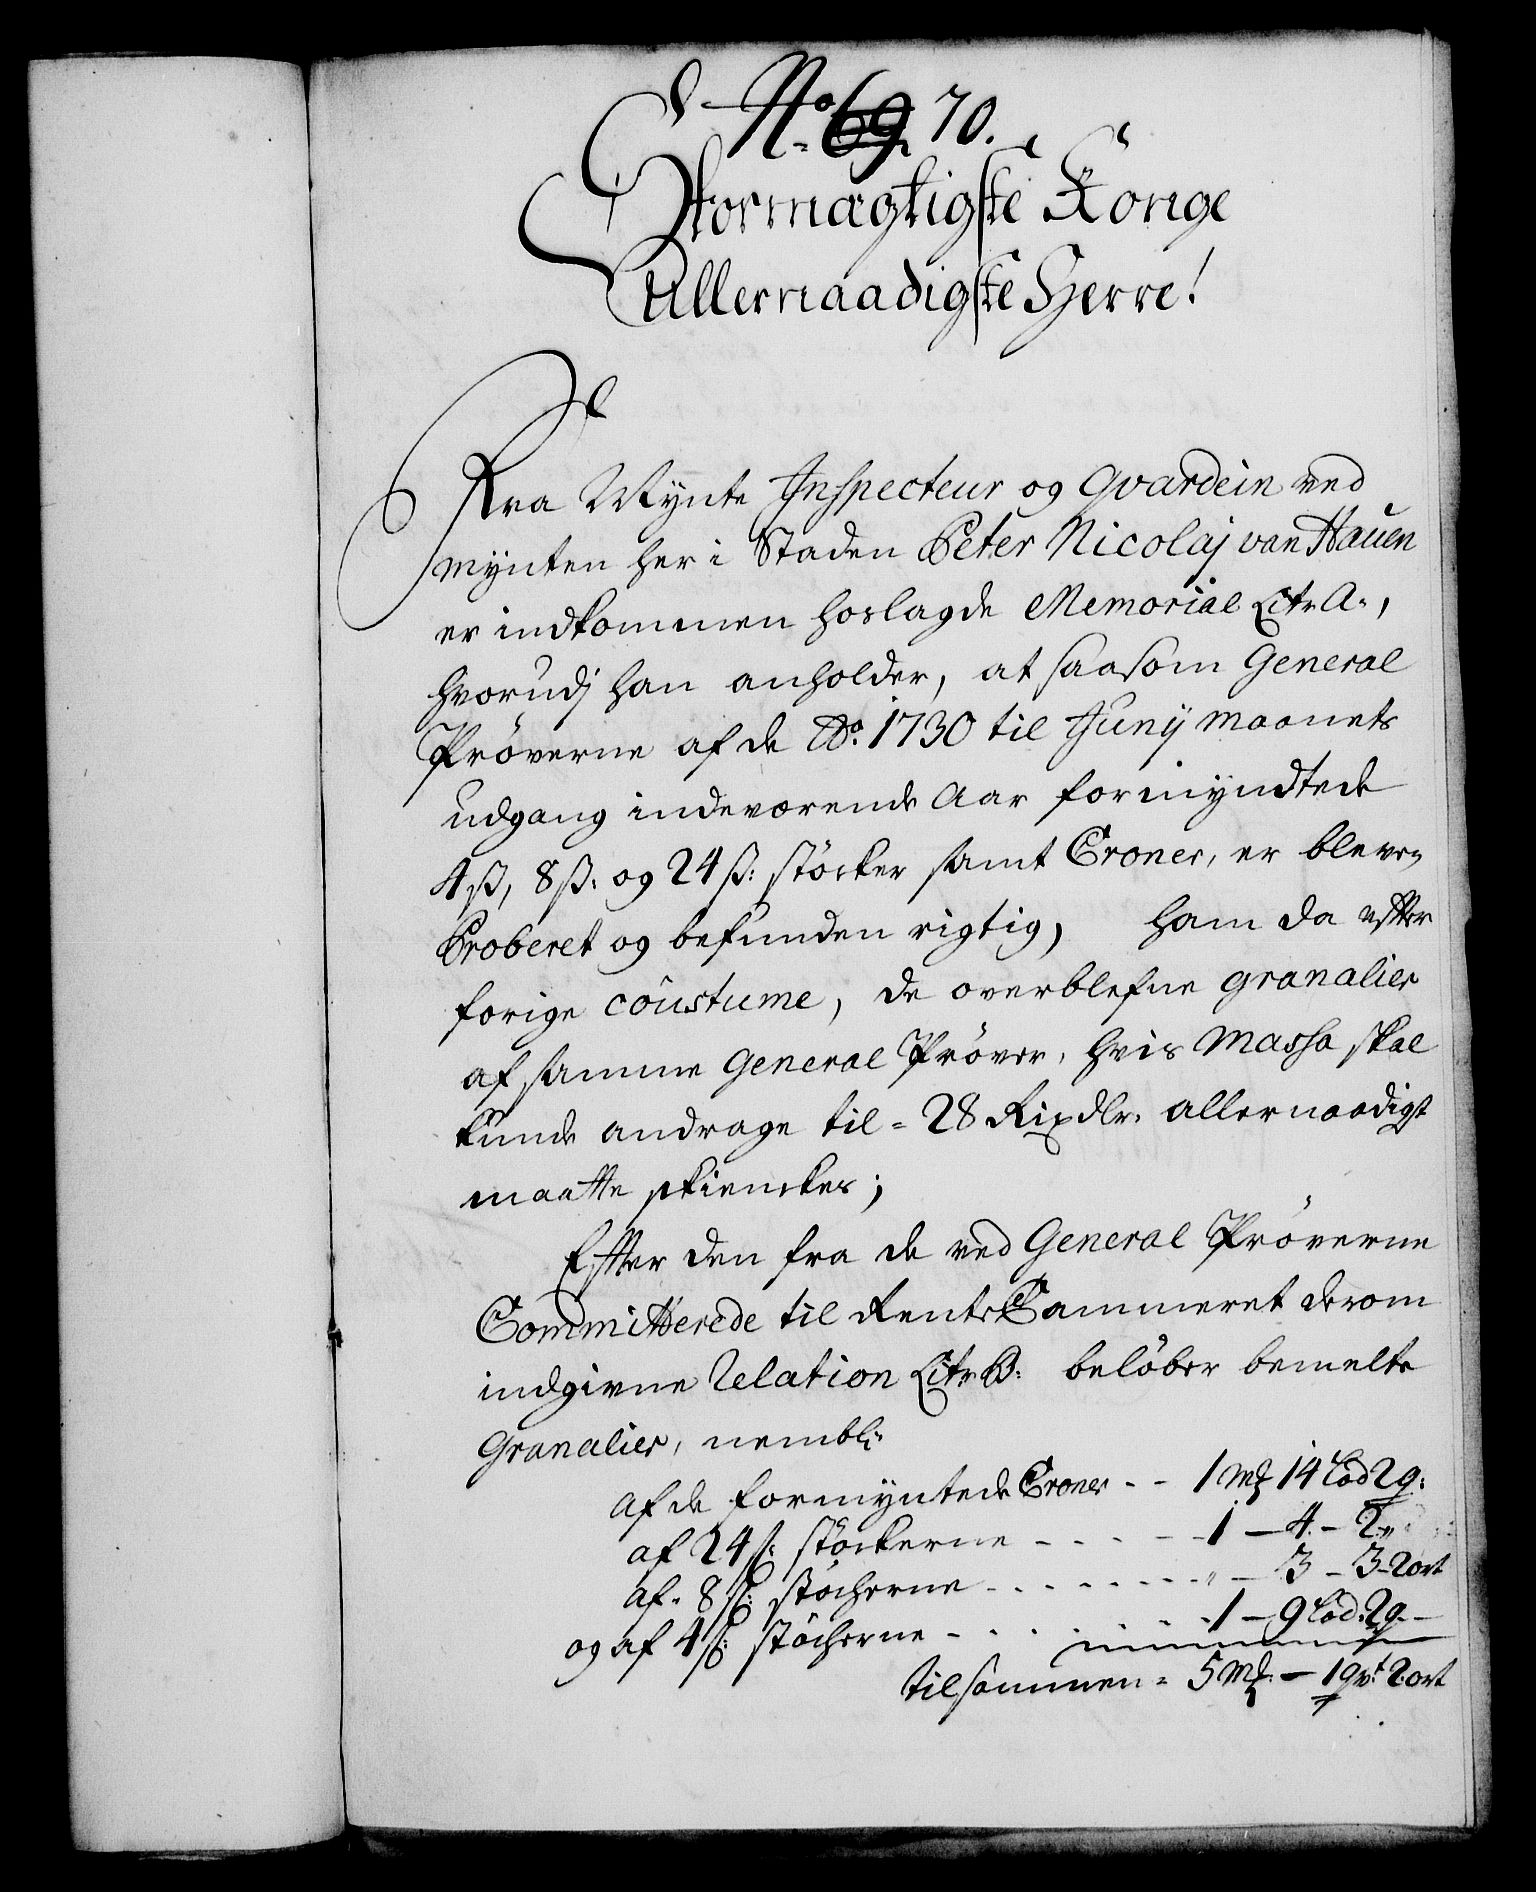 No 69. 70.
Stormægtigste Konge
Allernaadigste Herre!
Fra Mynte Inspecteur og Gvardein ved
Mynten her i Staden Peter Nicolaj van Hauen
er indkommen hoslagde Memorial Litr A.,
hvorudj han anholder, at saasom General
Prøverne af de Ao. 1730 til Juny Maanets
udgang indeværende Aar formyndtede
4ß, 8ß: og 24ß: støcker samt Croner, er bleven
Proberet og befunden rigtig, ham da efter
forige coustume, de overblefne granalier
af samme General Prøver, hvis Massa skal
kunde andrage til = 28 Rixdlr. allernaadigst
maatte skienckes;
Efter den fra de ved General Prøverne
Committerede til RenteCammeret derom
indgivne Relation Litr B: beløber bemelte
Granalier, nembl:
af de formyntede Croner - - 1 Mk 14 Lod 2q:
af 24ß: støckerne - - - - 1 - 4. - 2 "
af. 8ß: støcherne - - - - - - " - 3 - 3 - 2 ort
og af 4ß: støcherne - - - - - 1 - 9 Lod. 2q. -
tilsammen = 5 Mk. - 1 qvt. 2. ort